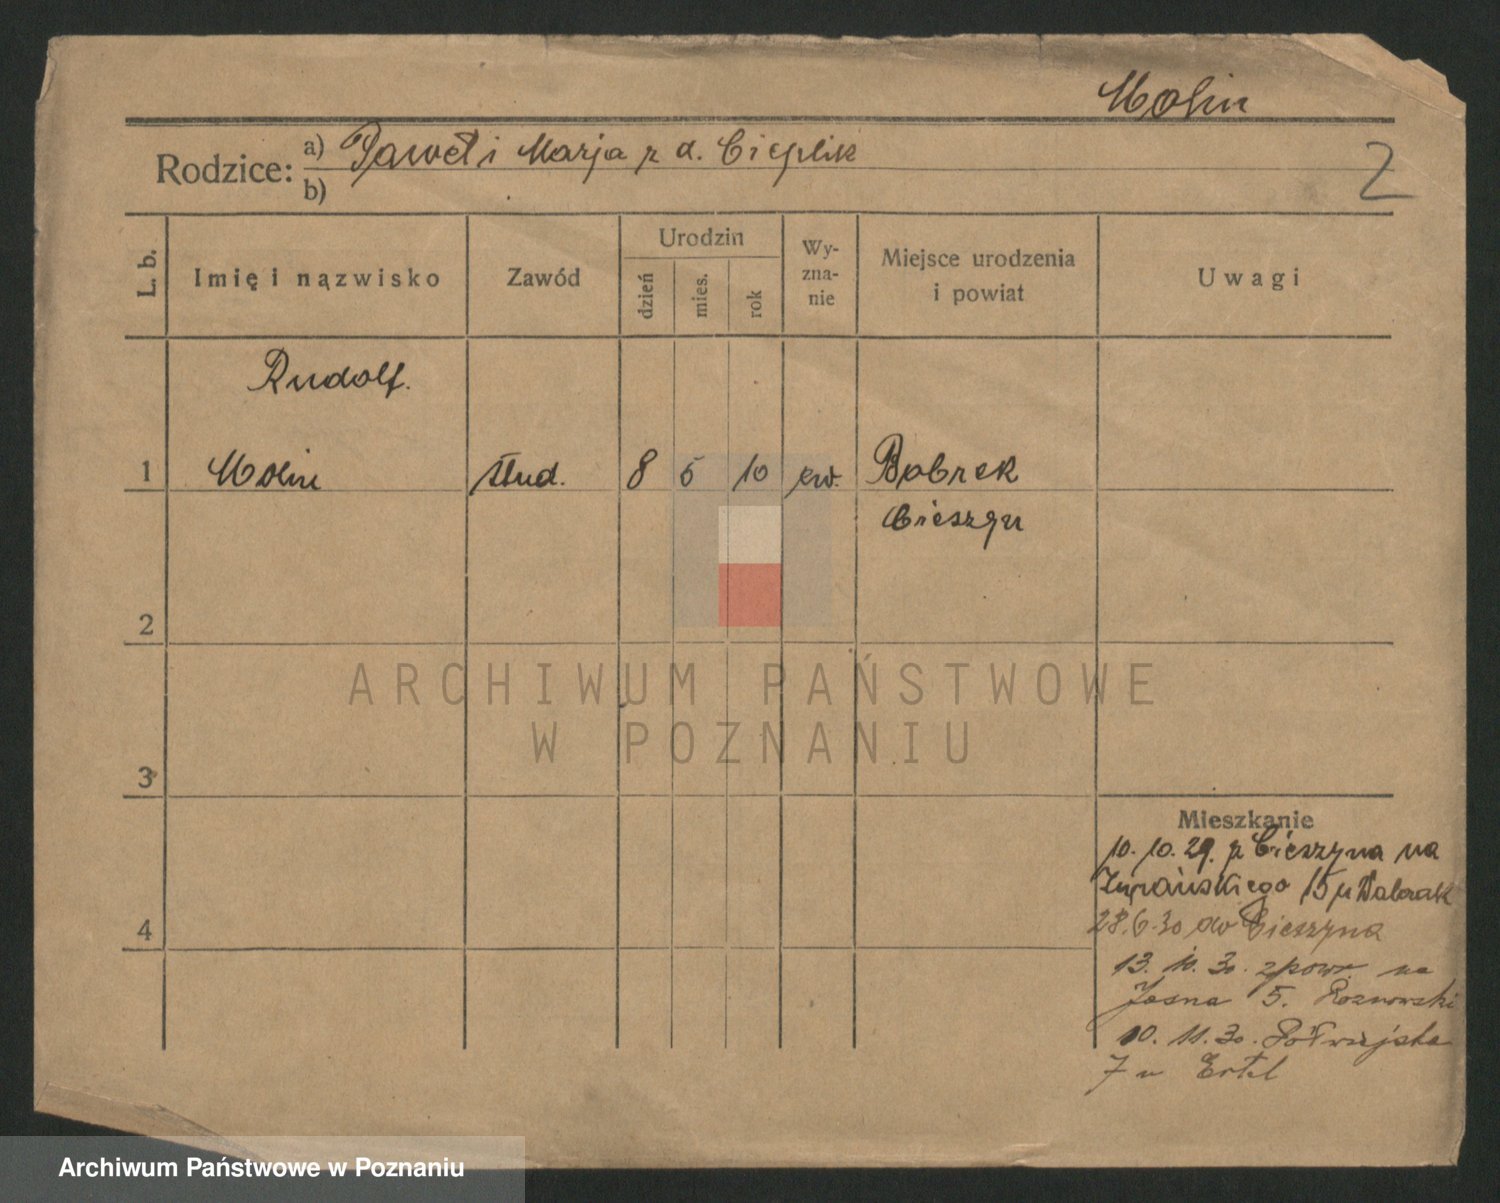 Molin
Rodzice: a) Paweł i Marja z d. Cieplik
b)
2
L. b.
Imię i nazwisko
Zawód
Urodzin
dzień
mies.
rok
Wy-
zna-
nie
Miejsce urodzenia
i powiat
Uwagi
Rudolf.
1 Molin stud. 8 5 10 ew. Bobrek
Cieszyn
2
3
4
Mieszkanie
10. 10. 29. z Cieszyna na
15 u
28.6.30 do Cieszyna
13. 10. 30. zpowr. na
Jasna 5. Roznowski
10. 11. 30. Półwiejska
7 u Ertel
ARCHIWUM PAŃSTWOWE
W POZNANIU
Archiwum Państwowe w Poznaniu